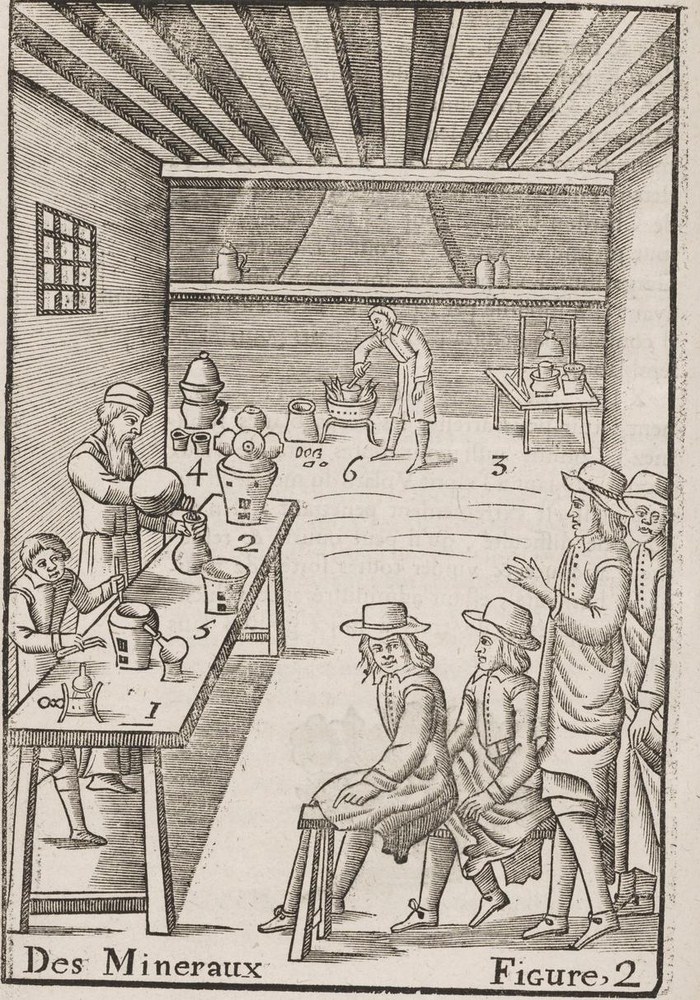 4
6
3
2
5
1
Des Mineraux
Figure, 2